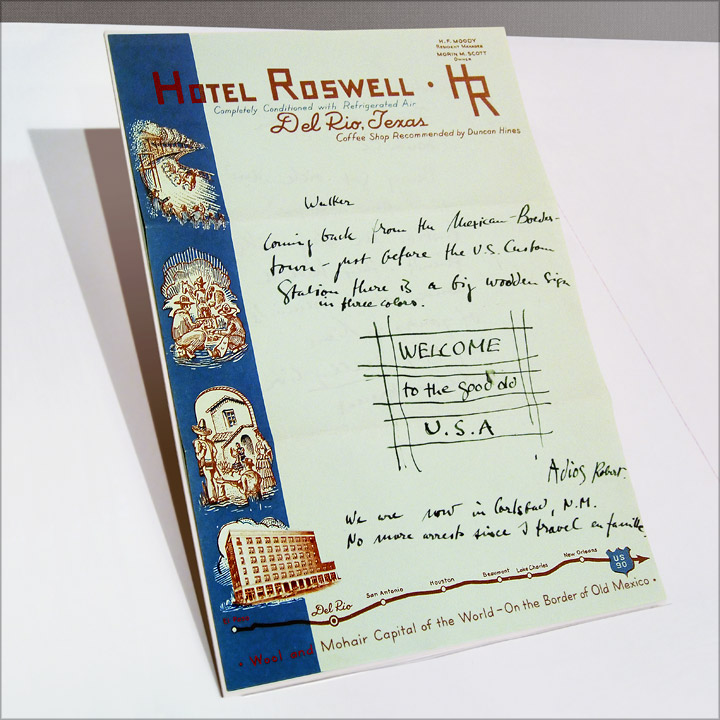 H. F. MOODY
RESIDENT MANAGER
MORIN M. SCOTT
OWNER
HOTEL ROSWELL · HR
Completely Conditioned with Refrigerated Air
Del Rio, Texas
Coffee Shop Recommended by Duncan Hines
Walker
Coming back from the Mexican-Border-
town - just before the U.S. Custom
Station there is a big wooden Sign
in three colors.
WELCOME
to the good old
U.S.A
Adios Robert.
We are now in Carlsbad, N.M.
No more arrests since I travel en famille.
El Paso
Del Rio
San Antonio
Houston
Beaumont
Lake Charles
New Orleans
US
90
• Wool and Mohair Capital of the World—On the Border of Old Mexico •